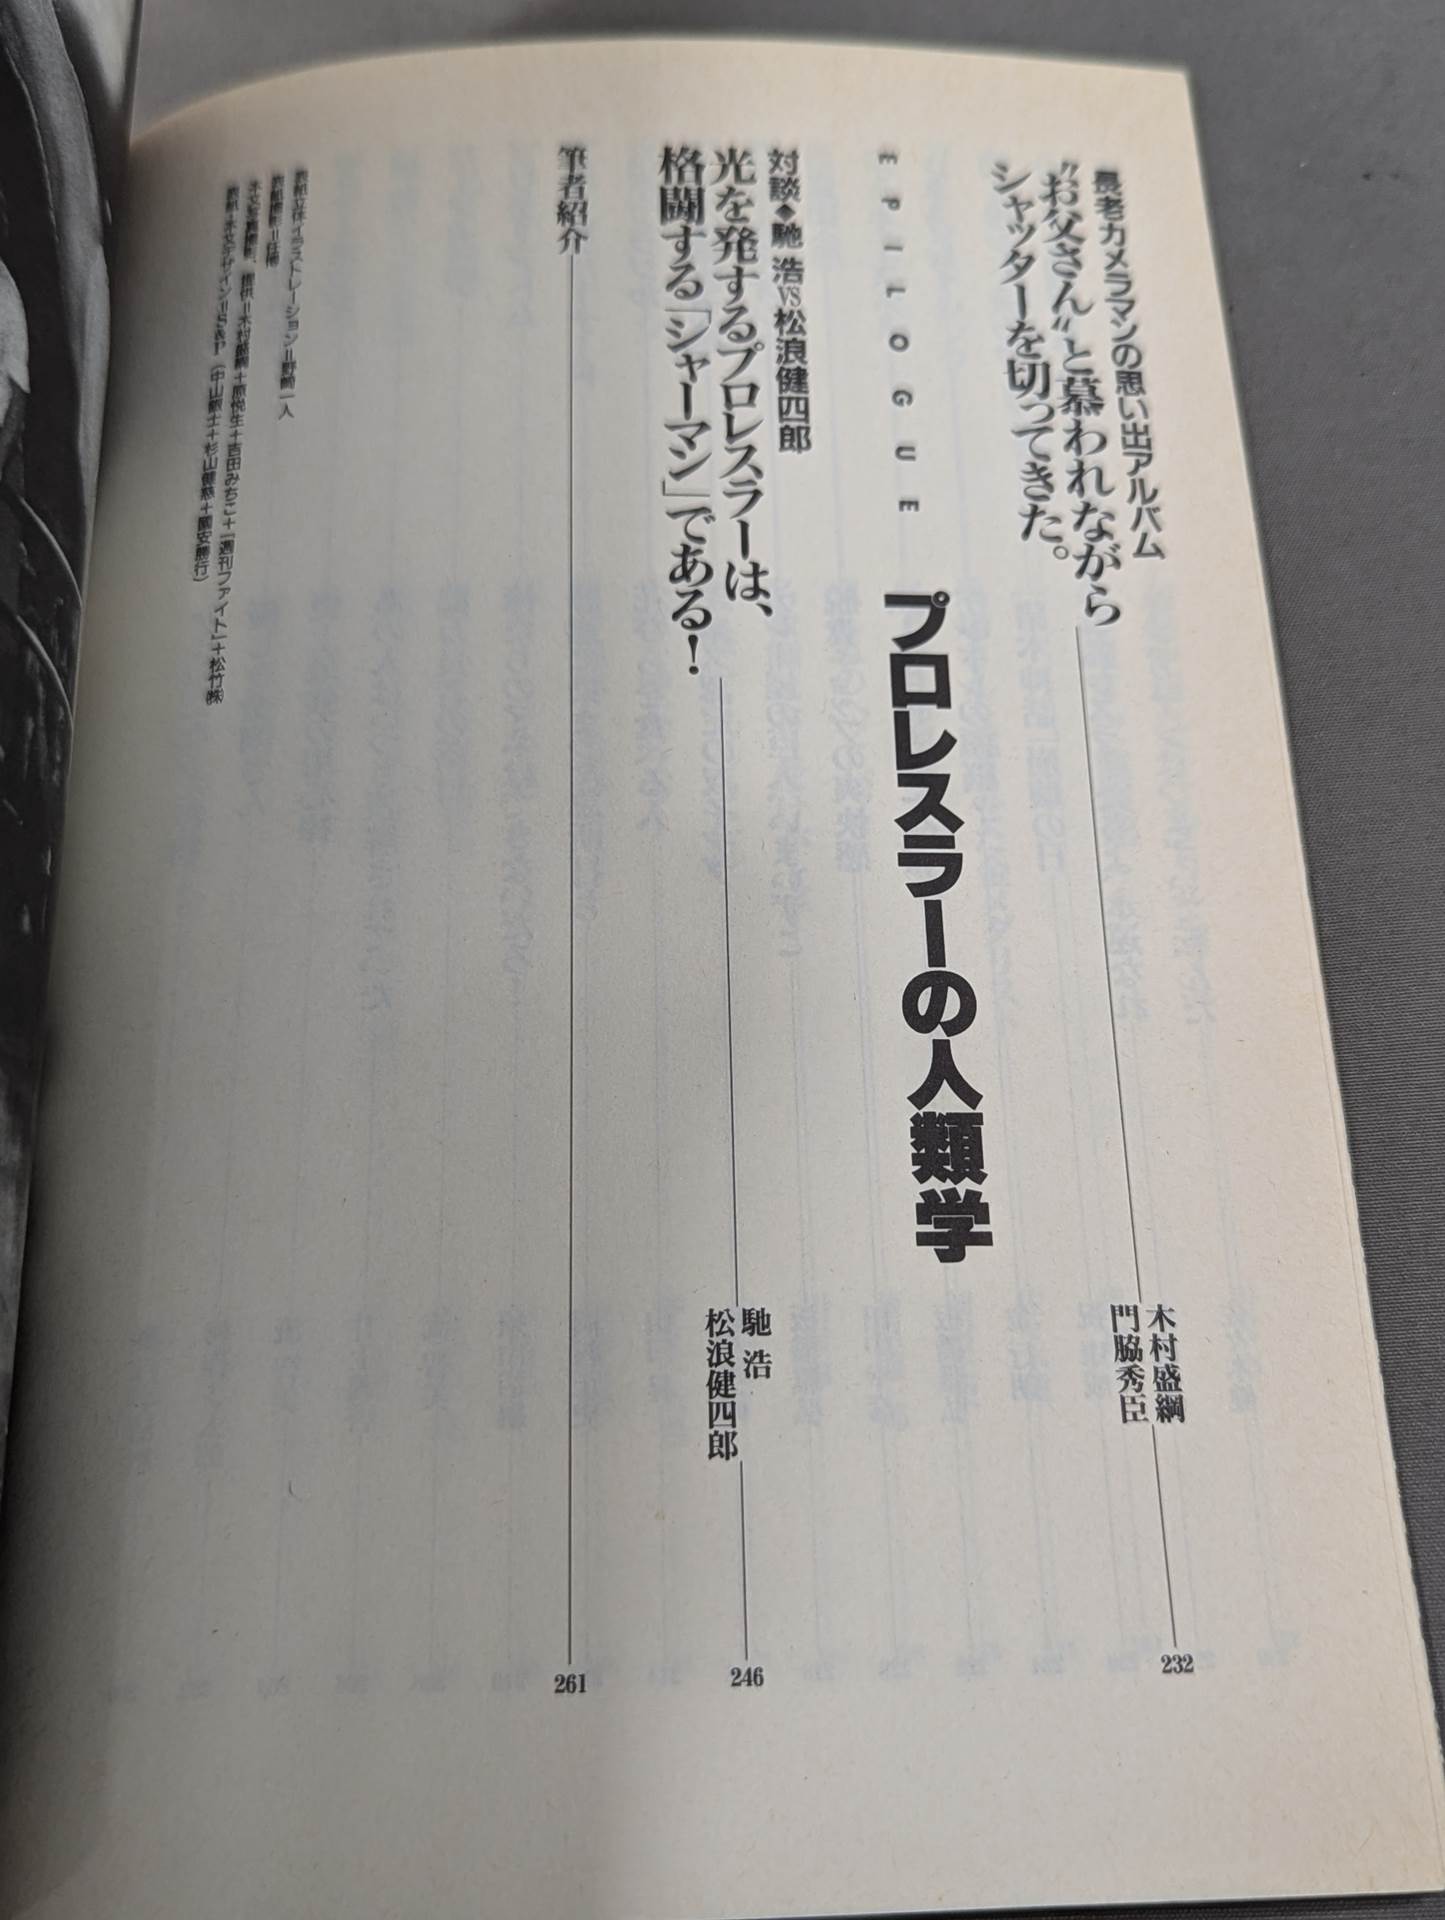 長老カメラマンの思い出アルバム
“お父さん”と慕われながら
シャッターを切ってきた。
木村盛綱
門脇秀臣
232
EPILOGUE
プロレスラーの人類学
対談◆馳 浩VS松浪健四郎
光を発するプロレスラーは、
格闘する「シャーマン」である!
馳 浩
松浪健四郎
246
筆者紹介
261
表紙立体イラストレーション=野崎一人
本文写真撮影、提供=木村盛綱+原悦生+吉田みちこ+「週刊ファイト」+松竹㈱